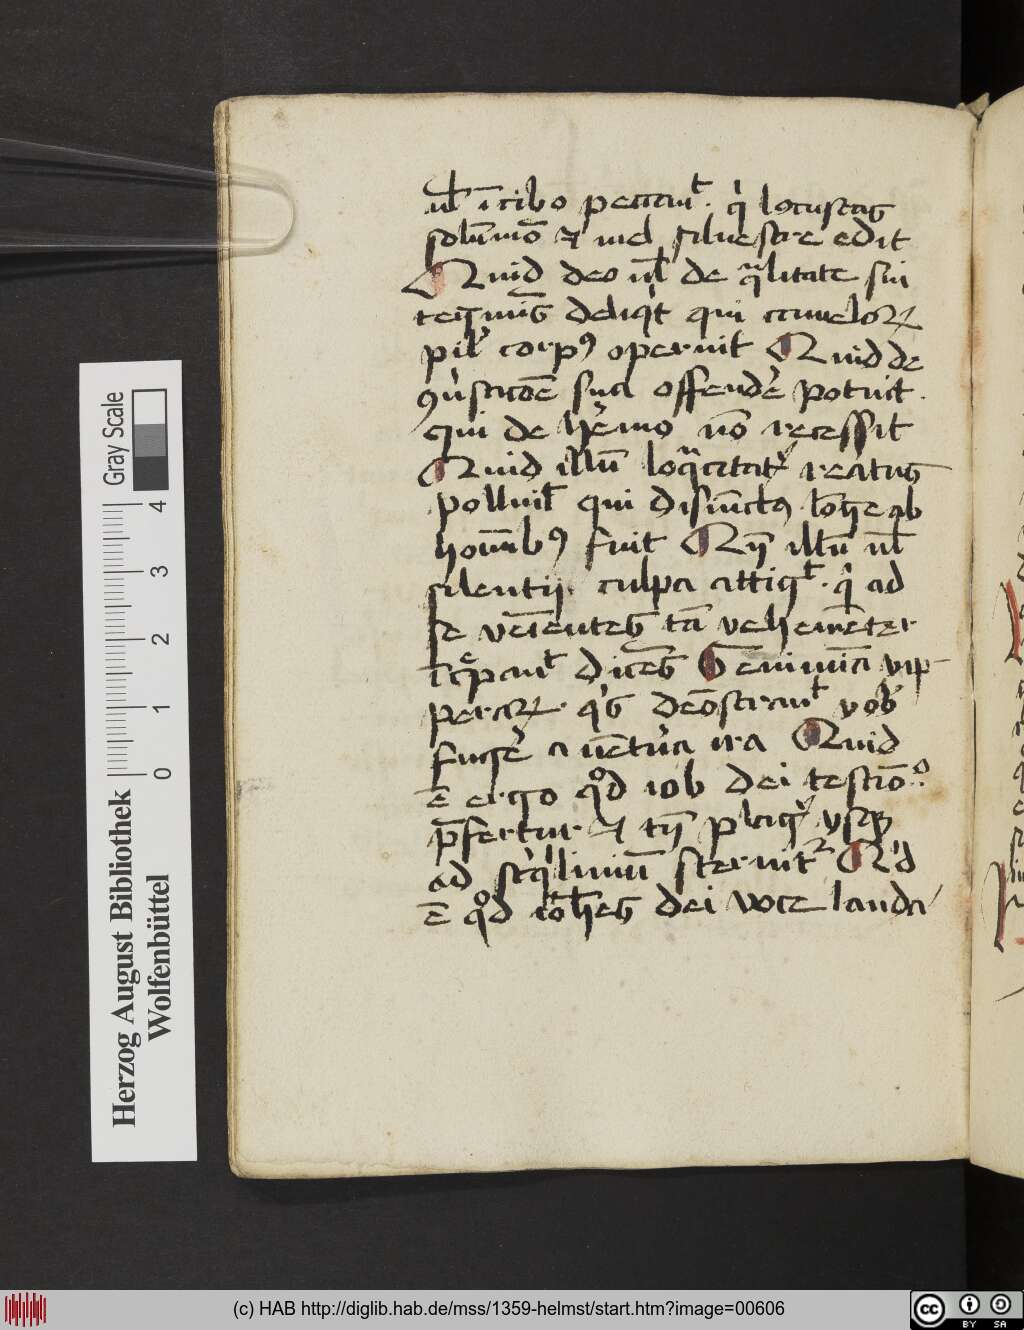 ul̄ ī cibo peccauͭ. qͥ locustas
solūmō ⁊ mel siluestre edit
Quid deo ul̄ de qͣlitate sui
tegmīs deliqͥt qui camelorꝝ
pil̓ corpꝰ operuit Quid de
ꝯuͥsacōe sua offendē potuit.
qui de hēmo nō recessit
Quid illū loqͣcitatꝭ reatus
polluit qui disiūctꝰ lōge ab
homībꝰ fuit Qn̄ illū ul̄
silentij culpa attigͭ. qͥ ad
se veīentes tā vehemēter
īcͤpauͭ dicēs Genimīa vip
perarꝝ qͥs demōstrauͭ vob̓
fugē a uētͬa ira Quid
ē ergo qͦd iob dei testiōͦ
p̄fertur ⁊ tn̄ plagꝭ vsqꝫ
ad stͥqͥliniū sternitͬ Qͥd
ē qͦd ioh̄es dei voce lauda
Herzog August Bibliothek
Wolfenbüttel
Gray Scale
0 1 2 3 4
(c) HAB http://diglib.hab.de/mss/1359-helmst/start.htm?image=00606
cc BY SA